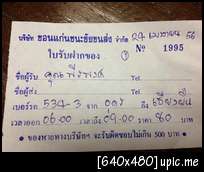 บริษัท ขอนแก่นชนะชัยขนส่ง จำกัด 24 เมษายน 56
ใบรับฝากของ ① Nº 1995
ชื่อผู้รับ คุณ Tel.
ชื่อผู้ส่ง Tel.
เบอร์รถ 534-3 จาก ถึง
เวลาออก 06.00 เวลาถึง 09.00 ราคา 80 บาท
* ของหายทางบริษัทฯ จะรับผิดชอบไม่เกิน 500 บาท *
[640x480]upic.me